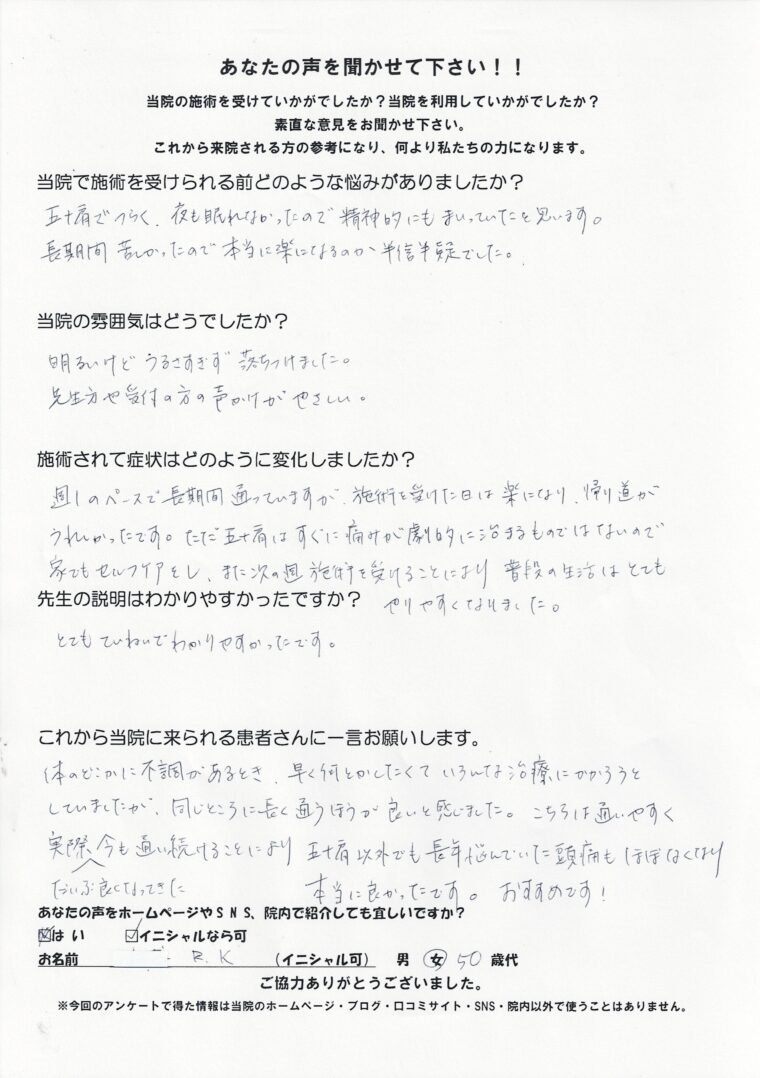 あなたの声を聞かせて下さい！！
当院の施術を受けていかがでしたか？当院を利用していかがでしたか？
素直な意見をお聞かせ下さい。
これから来院される方の参考になり、何より私たちの力になります。
当院で施術を受けられる前どのような悩みがありましたか？
五十肩でつらく、夜も眠れなかったので精神的にもまいっていたと思います。
長期間苦しかったので本当に楽になるのか半信半疑でした。
当院の雰囲気はどうでしたか？
明るいけどうるさすぎず落ちつけました。
先生方や受付の方の声かけがやさしい。
施術されて症状はどのように変化しましたか？
週1のペースで長期間通っていますが、施術を受けた日は楽になり、帰り道が
うれしかったです。ただ五十肩はすぐに痛みが劇的に治まるものではないので
家でもセルフケアをし、また次の週施術を受けることにより普段の生活はとても
やりやすくなりました。
先生の説明はわかりやすかったですか？
とてもていねいでわかりやすかったです。
これから当院に来られる患者さんに一言お願いします。
体のどこかに不調があるとき、早く何とかしたくていろんな治療にかかろうと
していましたが、同じところに長く通うほうが良いと感じました。こちらは通いやすく
実際今も通い続けることにより五十肩以外でも長年悩んでいた頭痛もほぼなくなり
だいぶ良くなってきた 本当に良かったです。おすすめです！
あなたの声をホームページやＳＮＳ、院内で紹介しても宜しいですか？
はい イニシャルなら可
お名前 R.K （イニシャル可） 男 女 50 歳代
ご協力ありがとうございました。
※今回のアンケートで得た情報は当院のホームページ・ブログ・口コミサイト・SNS・院内以外で使うことはありません。